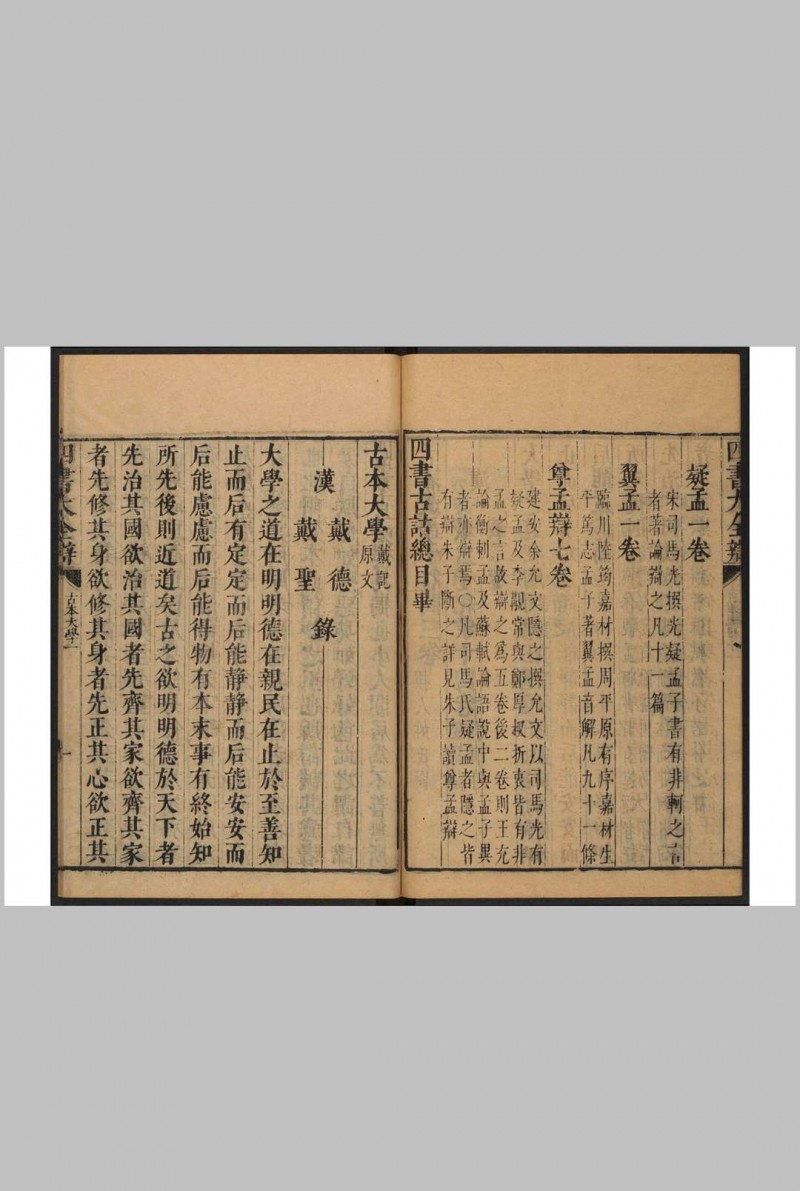 四書大全辯
疑孟一卷
宋司馬光撰光疑孟子書有非軻之言
者著論辯之凡十一篇
翼孟一卷
臨川陸筠嘉材撰周平原有序嘉材生
平篤志孟子著翼孟音解凡九十一條
尊孟辯七卷
建安余允文隱之撰允文以司馬光有
疑孟及李覯常與鄭厚叔折衷皆有非
孟之言故辯之為五卷後二卷則王充
論衡刺孟及蘇軾論語說中與孟子異
者亦辯焉○凡司馬氏疑孟者隱之皆
有辯朱子斷之詳見朱子讀尊孟辯
四書古詁總目畢
古本大學戴記
原文
漢 戴德
戴聖 錄
大學之道在明明德在親民在止於至善知
止而后有定定而后能靜靜而后能安安而
后能慮慮而后能得物有本末事有終始知
所先後則近道矣古之欲明明德於天下者
先治其國欲治其國者先齊其家欲齊其家
者先修其身欲修其身者先正其心欲正其
四書大全辯
古本大學
一